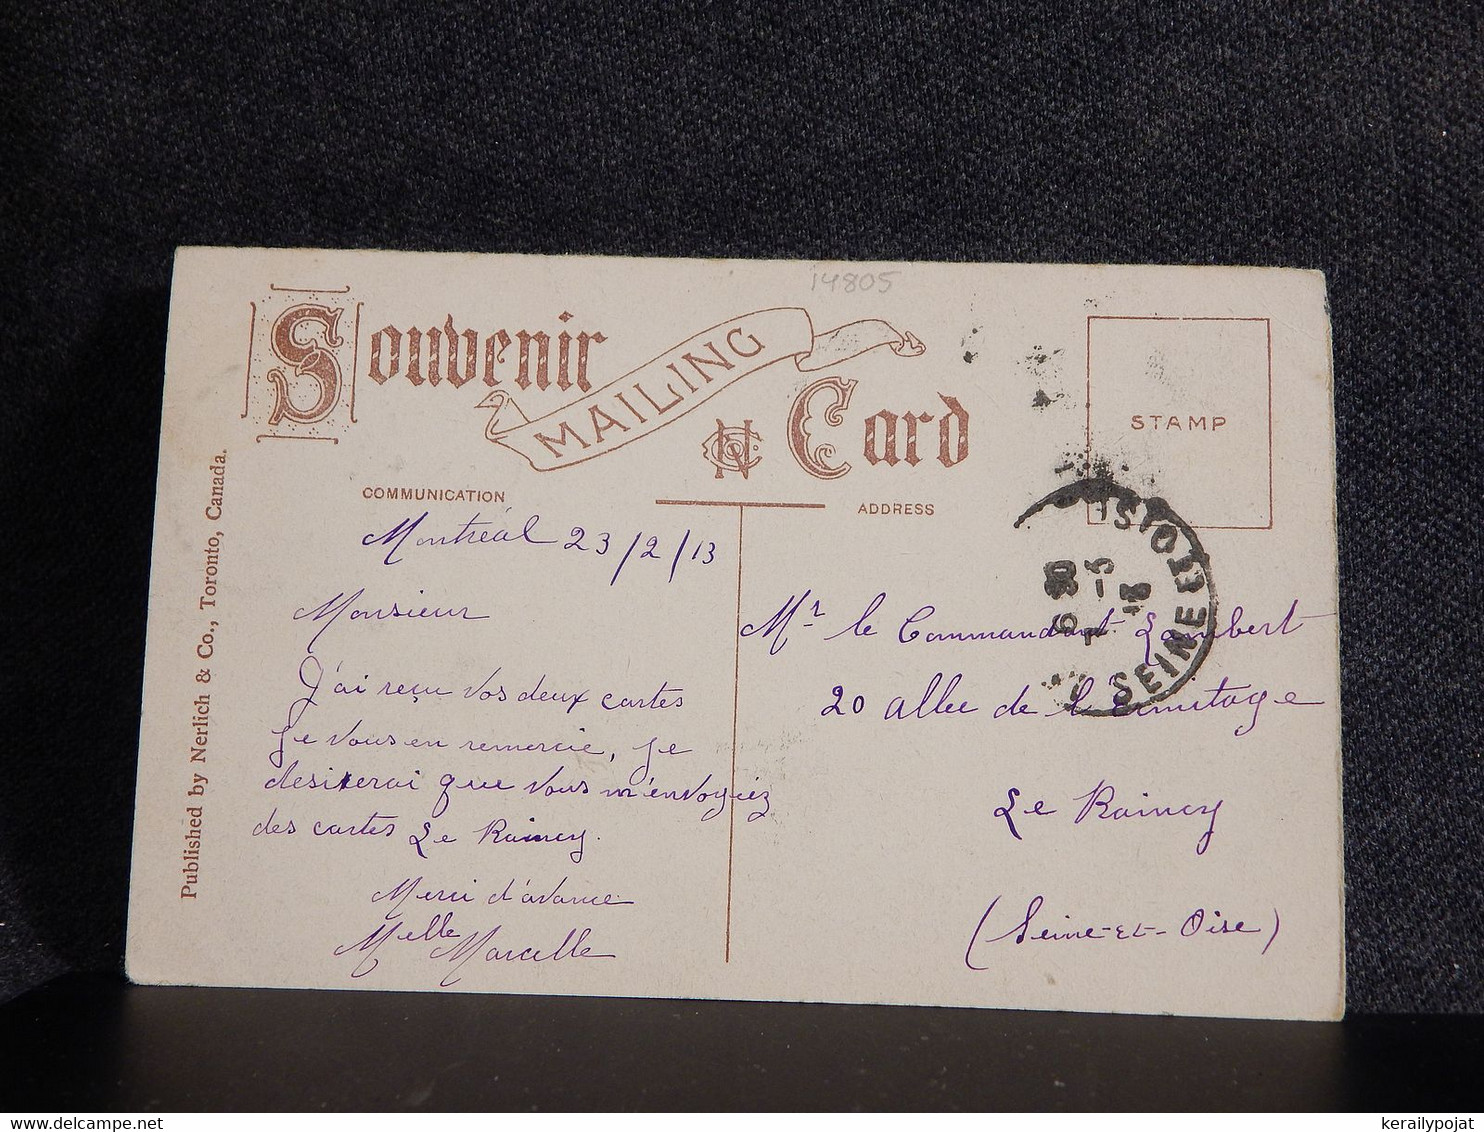 14805
Souvenir
MAILING
Card
STAMP
COMMUNICATION
ADDRESS
Published by Nerlich & Co., Toronto, Canada.
Montréal 23/2/13
Monsieur
J'ai reçu vos deux cartes
je vous en remercie, je
desirerai que vous m'envoyiez
des cartes Le Raincy.
Merci d'avance
Melle Marcelle
Mr le Commandant Lambert
20 allee de l'Ermitage
Le Raincy
(Seine-et-Oise)
SEINE
OISE
6 30
7 - 3
kerailypojat